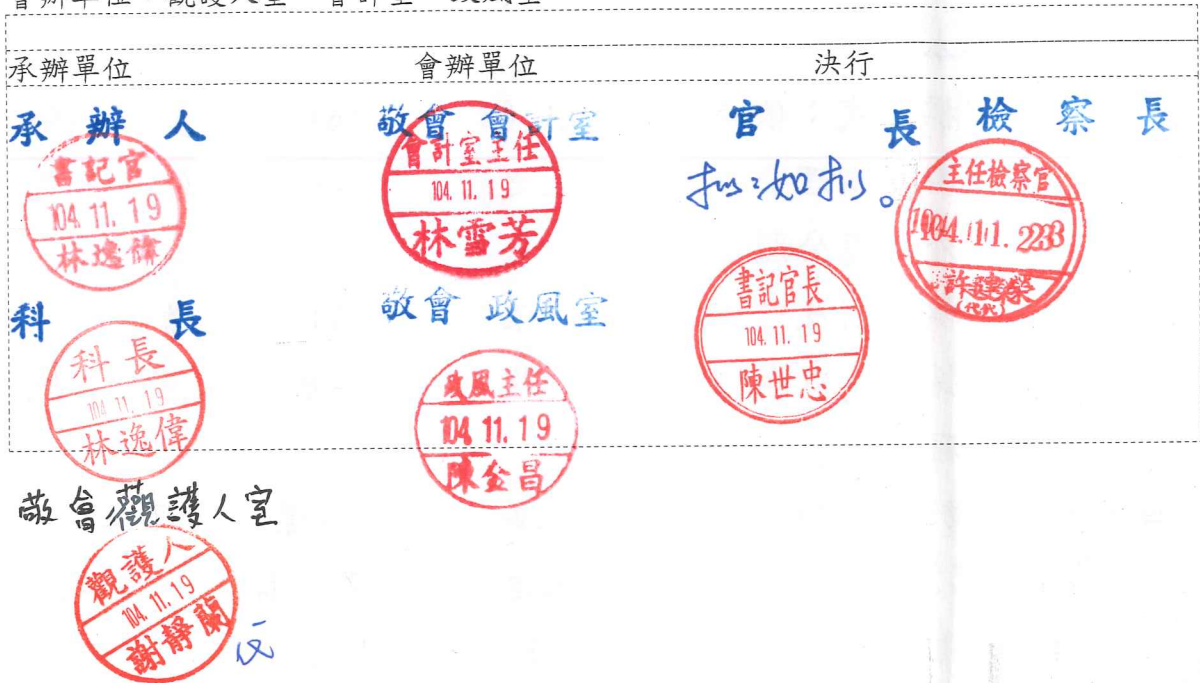 會辦單位：觀護人室、會計室、政風室
承辦單位 會辦單位 決行
承辦人
書記官
104.11.19
林逸偉
科長
科長
104.11.19
林逸偉
敬會觀護人室
觀護人
104.11.19
謝靜蘭
代
敬會 會計室
會計室主任
104.11.19
林雪芳
敬會 政風室
政風主任
104.11.19
陳金昌
官長
書記官長
104.11.19
陳世忠
檢察長
如擬。
主任檢察官
許建榮